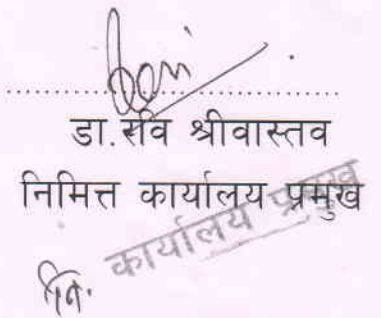 डा.रवि श्रीवास्तव
निमित्त कार्यालय प्रमुख
नि. कार्यालय प्रमुख